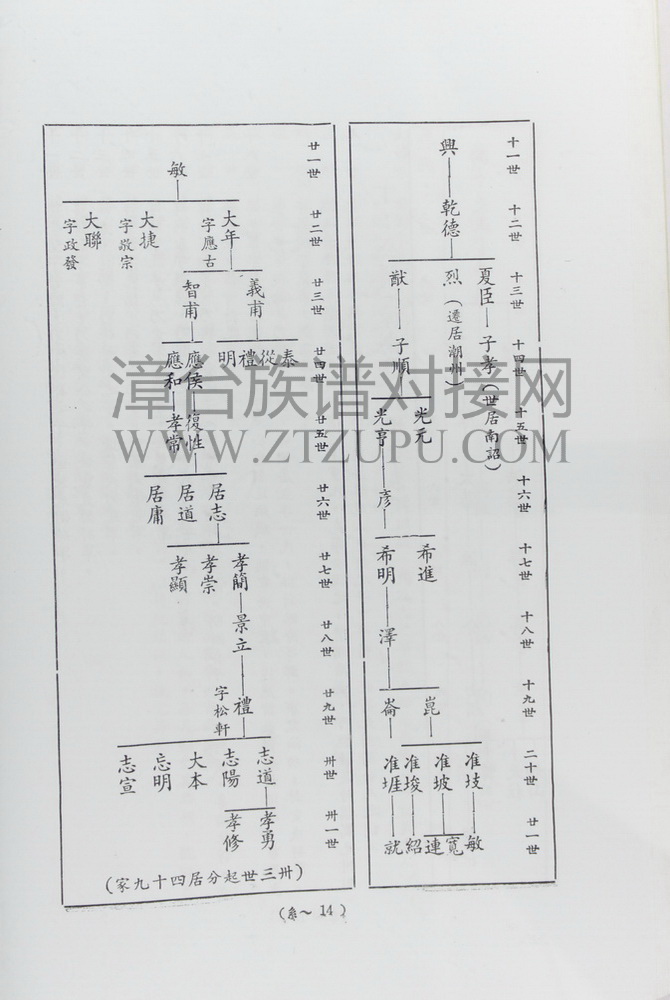 十一世
興
十二世
乾德
十三世
夏臣
烈（遷居潮州）
猷
十四世
子孝（世居南詔）
子順
十五世
光元
光亨
十六世
彥
十七世
希進
希明
十八世
澤
十九世
崑
崙
二十世
准坡
准埈
准堐
廿一世
敏
寬
連
紹
就
廿一世
敏
廿二世
大年
字應古
大捷
字敬宗
大聯
字政發
廿三世
義甫
智甫
廿四世
泰
從
禮
明
應侯
應和
廿五世
復性
孝常
廿六世
居志
居道
居庸
廿七世
孝簡
孝崇
孝顯
廿八世
景立
廿九世
禮
字松軒
卅世
志道
志陽
大本
忘明
志宣
卅一世
孝勇
孝修
（卅三世起分居四十九家）
漳台族谱对接网
WWW.ZTZUPU.COM